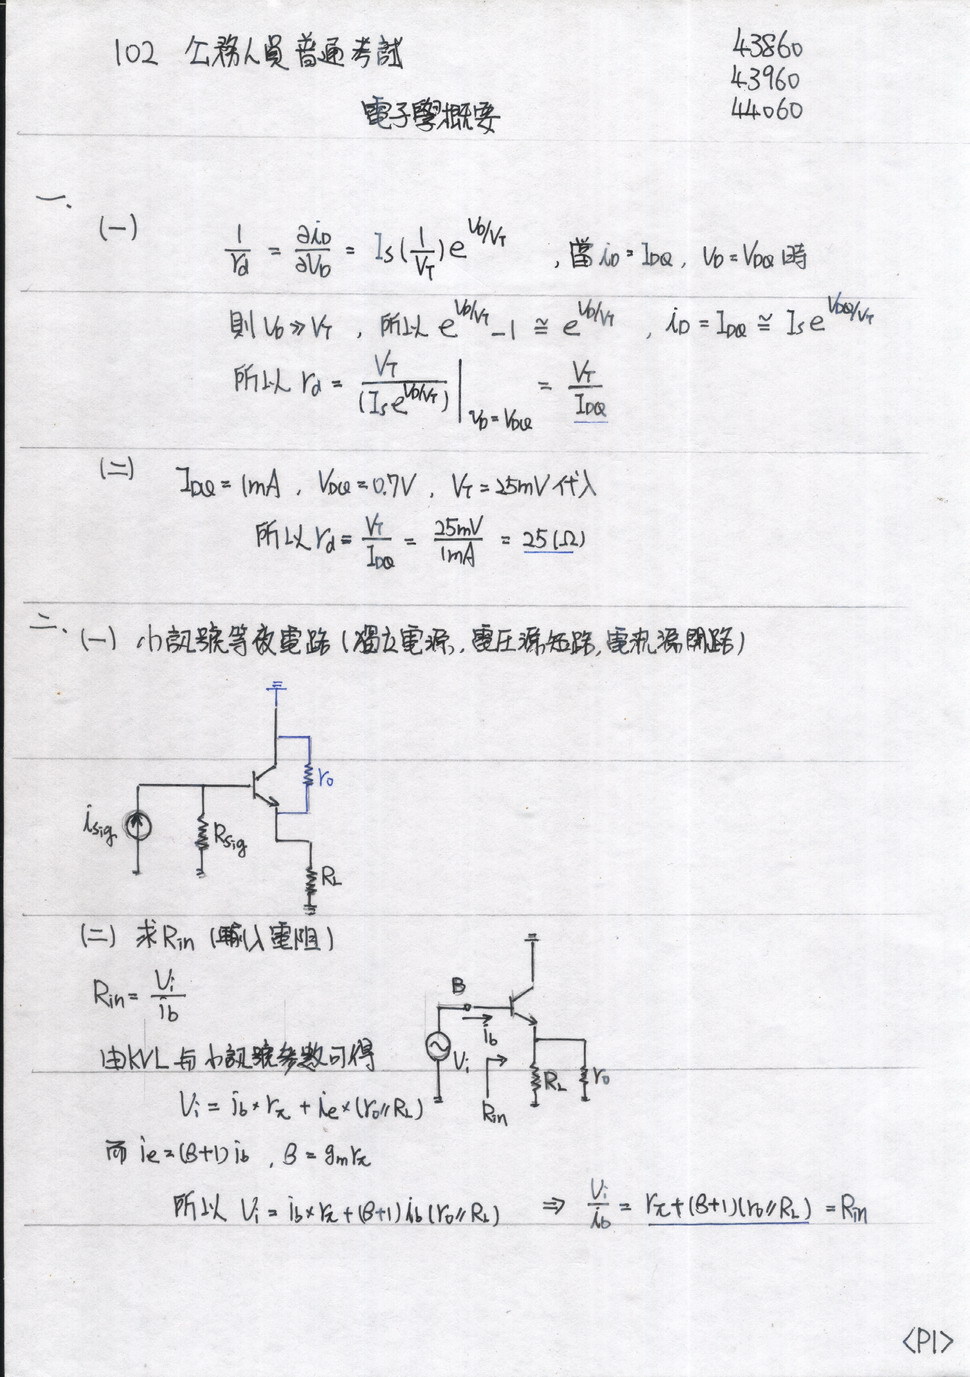 102 公務人員普通考試
43860
43960
44060
電子學概要
一、
(一) 1/rd = ∂iD/∂VD = Is(1/VT)e^(VD/VT) , 當 iD = IDQ , VD = VDQ 時
則 VD ≫ VT , 所以 e^(VD/VT) - 1 ≅ e^(VD/VT) , iD = IDQ ≅ Is e^(VDQ/VT)
所以 rd = VT/(Is e^(VD/VT)) | VD = VDQ = VT/IDQ
(二) IDQ = 1mA , VDQ = 0.7V , VT = 25mV 代入
所以 rd = VT/IDQ = 25mV/1mA = 25(Ω)
二、(一) 小訊號等效電路 (獨立電源, 電压源短路, 電流源開路)
ro
isig
Rsig
RL
(二) 求 Rin (輸入電阻)
Rin = Vi/ib
B
ib
Vi
Rin
RL
ro
由KVL 与小訊號參數可得
Vi = ib × rπ + ie × (ro // RL)
而 ie = (β+1) ib , β = gm rπ
所以 Vi = ib × rπ + (β+1) ib (ro // RL) ⇒ Vi/ib = rπ + (β+1)(ro // RL) = Rin
<P1>